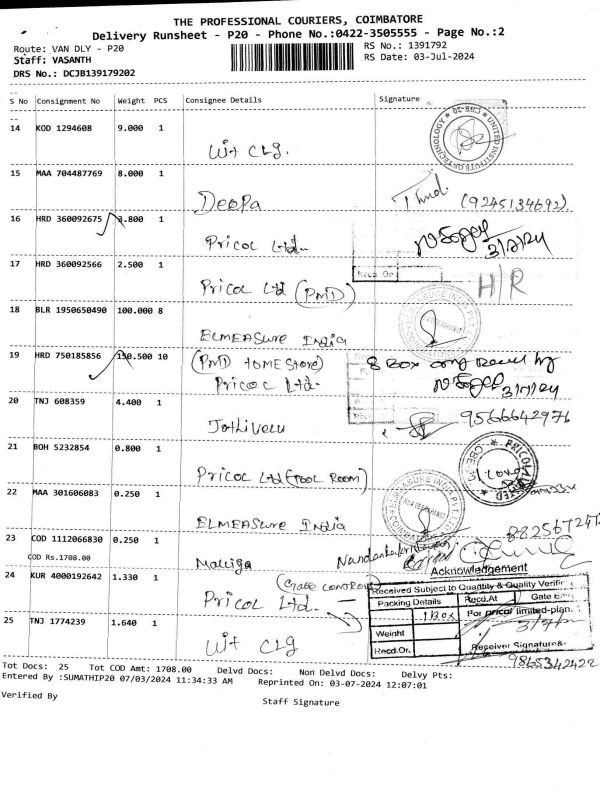 THE PROFESSIONAL COURIERS, COIMBATORE
Delivery Runsheet - P20 - Phone No.:0422-3505555 - Page No.:2
Route: VAN DLY - P20
RS No.: 1391792
Staff: VASANTH
RS Date: 03-Jul-2024
DRS No.: DCJB139179202
S No Consignment No Weight PCS Consignee Details Signature
14 KOD 1294608 9.000 1
Uit Clg.
UNITED INSTITUTE OF TECHNOLOGY * CBE-20 *
15 MAA 704487769 8.000 1
Deepa (9245134692)
16 HRD 360092675 3.800 1
Pricol Ltd.
3/7/24
17 HRD 360092566 2.500 1
Pricol Ltd (PMD) H/R
Recd On
18 BLR 1950650490 100.000 8
ELMEASURE India
19 HRD 750185856 150.500 10
(PMD TOMESTORE) 8 Box only Recd by
Pricol Ltd. 3/7/24
20 TNJ 608359 4.400 1
Jothivelu 9566642976
21 BOH 5232854 0.800 1
Pricol Ltd (TOOL ROOM)
22 MAA 301606083 0.250 1
ELMEASURE India
23 COD 1112066830 0.250 1
COD Rs.1708.00
Malliga
Acknowledgement
24 KUR 4000192642 1.330 1
Pricol Ltd.
Received Subject to Quantity & Quality Verifi
Packing Details Recd.At Gate Entry
1 Box For pricol limited-plant
Weight
Recd.On. Receiver Signature&
25 TNJ 1774239 1.640 1
Uit Clg
9865342422
Tot Docs: 25 Tot COD Amt: 1708.00 Delvd Docs: Non Delvd Docs: Delvy Pts:
Entered By :SUMATHIP20 07/03/2024 11:34:33 AM Reprinted On: 03-07-2024 12:07:01
Verified By
Staff Signature